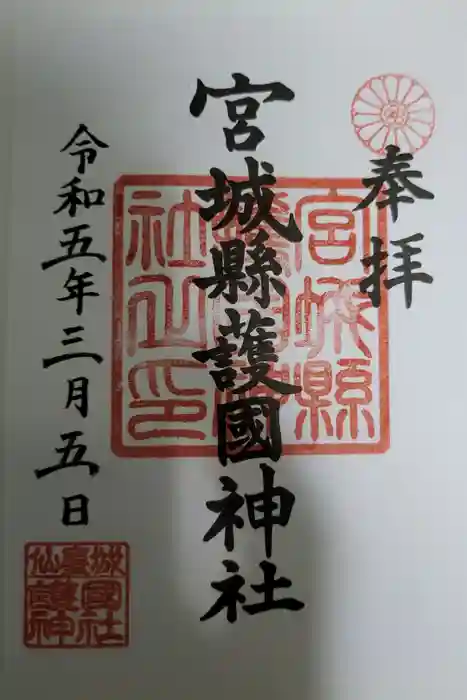 奉拝
宮城縣護國神社
令和五年三月五日
宮城縣
護國神
社之印